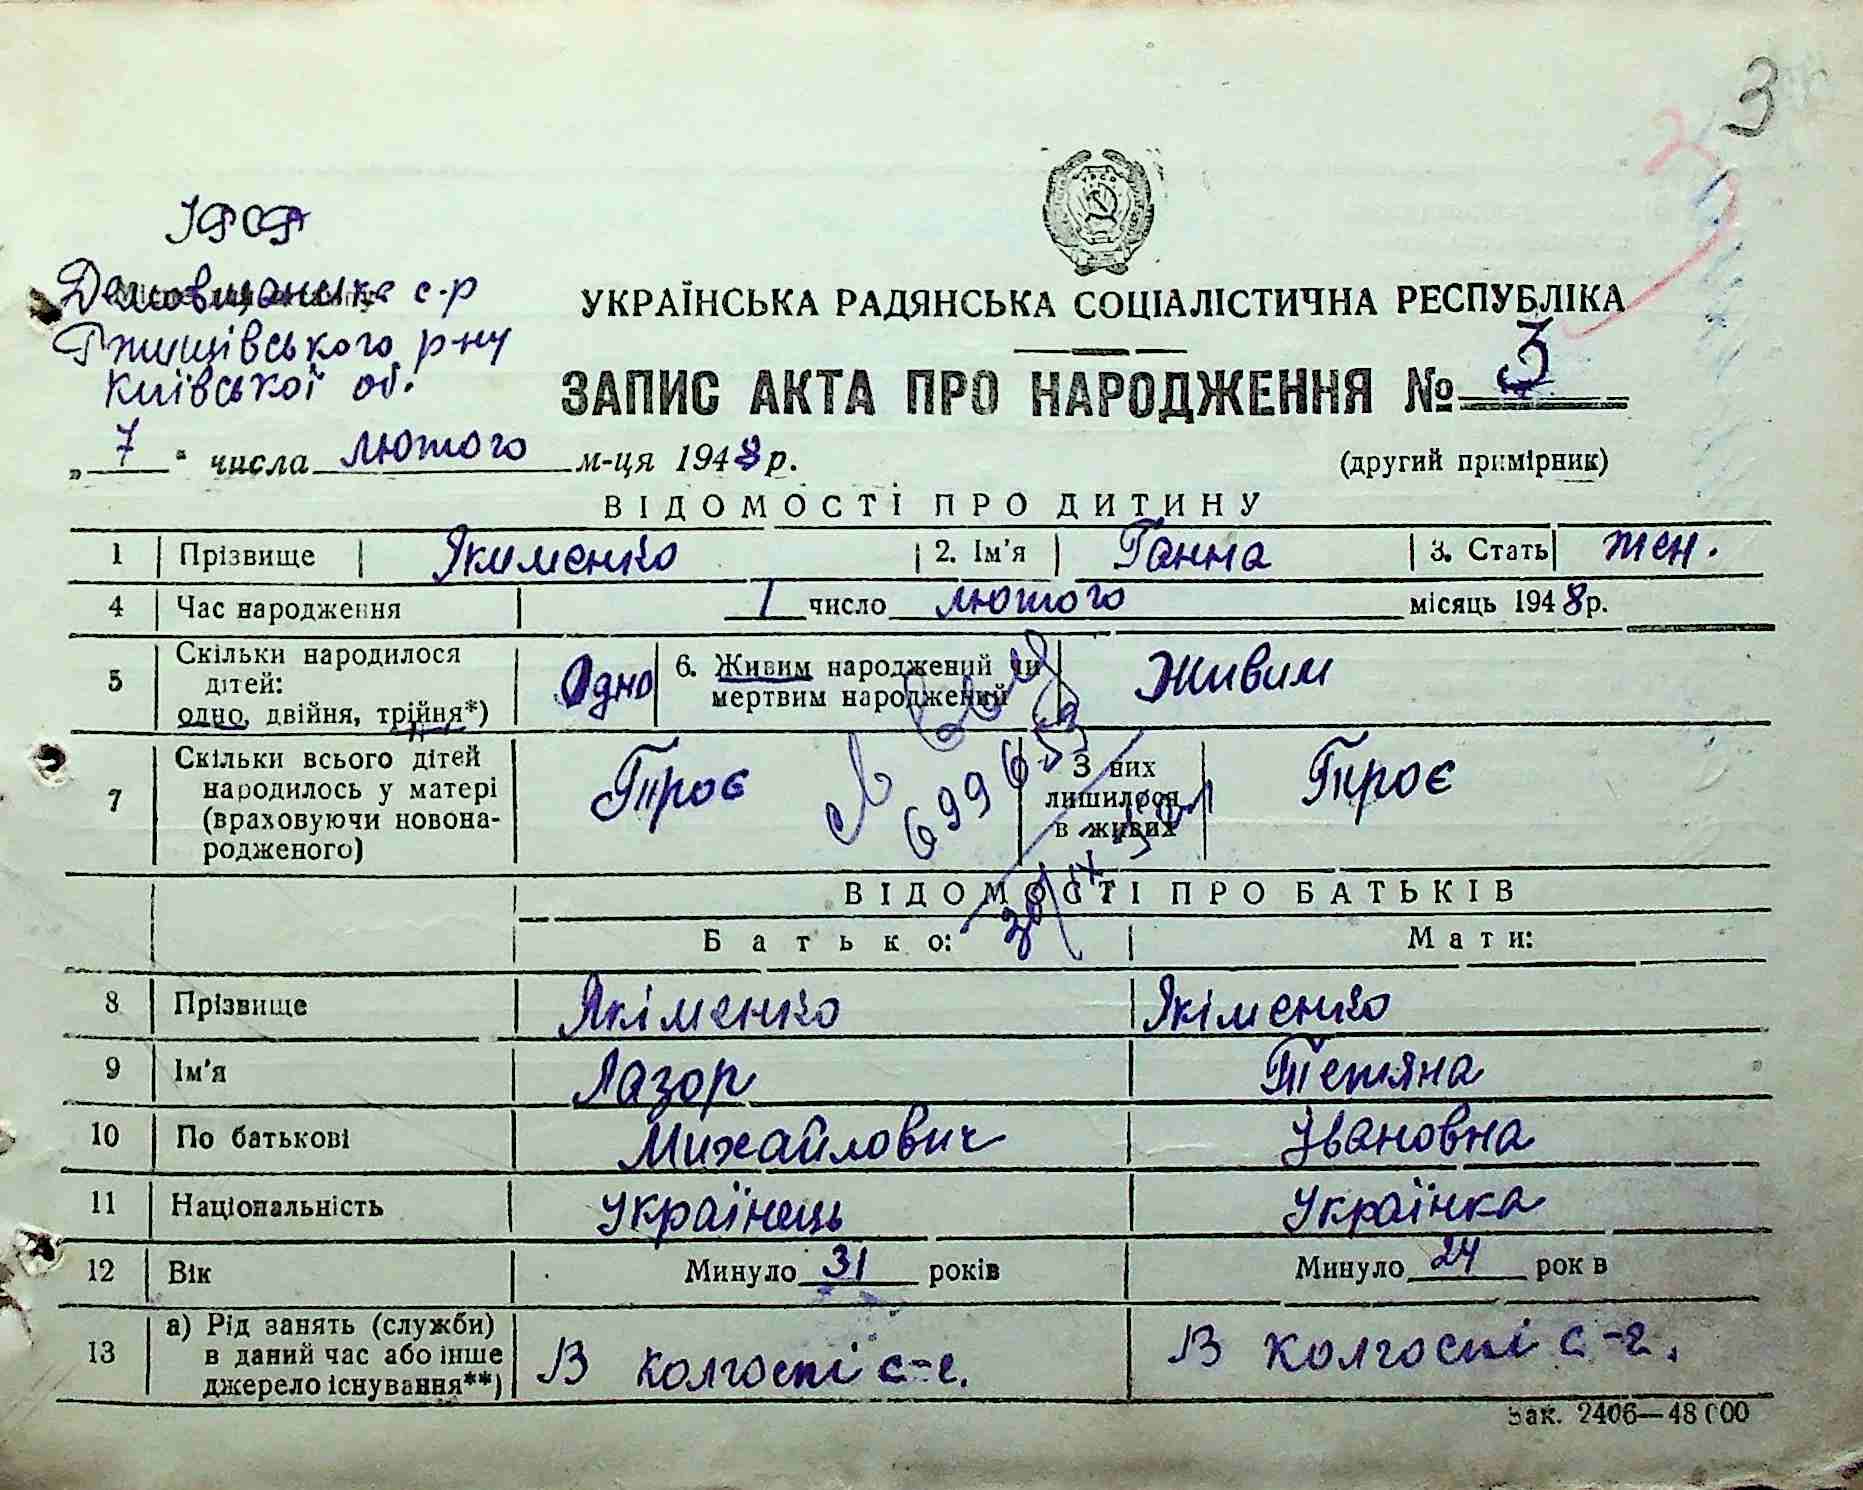 3
УКРАЇНСЬКА РАДЯНСЬКА СОЦІАЛІСТИЧНА РЕСПУБЛІКА
с-р
Ржищівського р-ну
Київської об.
ЗАПИС АКТА ПРО НАРОДЖЕННЯ № 3
„ 7 “ числа лютого м-ця 1948 р.
(другий примірник)
ВІДОМОСТІ ПРО ДИТИНУ
1 Прізвище Якименко 2. Ім'я Ганна 3. Стать жен.
4 Час народження 1 число лютого місяць 1948 р.
5 Скільки народилося дітей: одно, двійня, трійня*) Одно 6. Живим народжений чи мертвим народжений Живим
7 Скільки всього дітей народилось у матері (враховуючи новонародженого) Троє З них лишилося в живих Троє
ВІДОМОСТІ ПРО БАТЬКІВ
Батько: Мати:
8 Прізвище Якіменко Якіменко
9 Ім'я Лазор Тетяна
10 По батькові Михайлович Івановна
11 Національність Українець Українка
12 Вік Минуло 31 років Минуло 24 рок в
13 а) Рід занять (служби) в даний час або інше джерело існування**) В колгоспі с-г. В колгоспі с-г.
Зак. 2406—48000